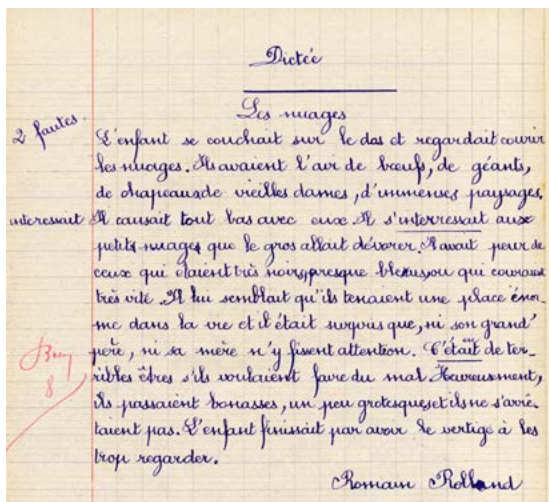 Dictée
Les nuages
2 fautes.
L'enfant se couchait sur le dos et regardait courir
les nuages. Ils avaient l'air de bœufs, de géants,
de chapeaux de vieilles dames, d'immenses paysages.
interessait Il causait tout bas avec eux. Il s'interressait aux
petits nuages que le gros allait dévorer. Il avait peur de
ceux qui étaient très noirs, presque bleus, ou qui couraient
très vite. Il lui semblait qu'ils tenaient une place énor-
me dans la vie et il était surpris que, ni son grand'
père, ni sa mère n'y fissent attention. C'était de ter-
Bien
8
ribles êtres s'ils voulaient faire du mal. Heureusement,
ils passaient bonasses, un peu grotesques, et ils ne s'arrê-
taient pas. L'enfant finissait par avoir le vertige à les
trop regarder.
Romain Rolland